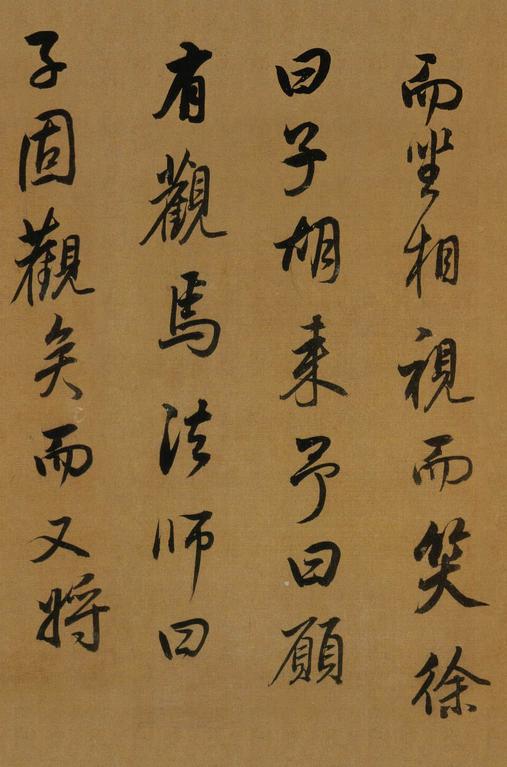 而坐相視而笑徐
曰子胡来予曰願
有觀焉法師曰
子固觀矣而又將